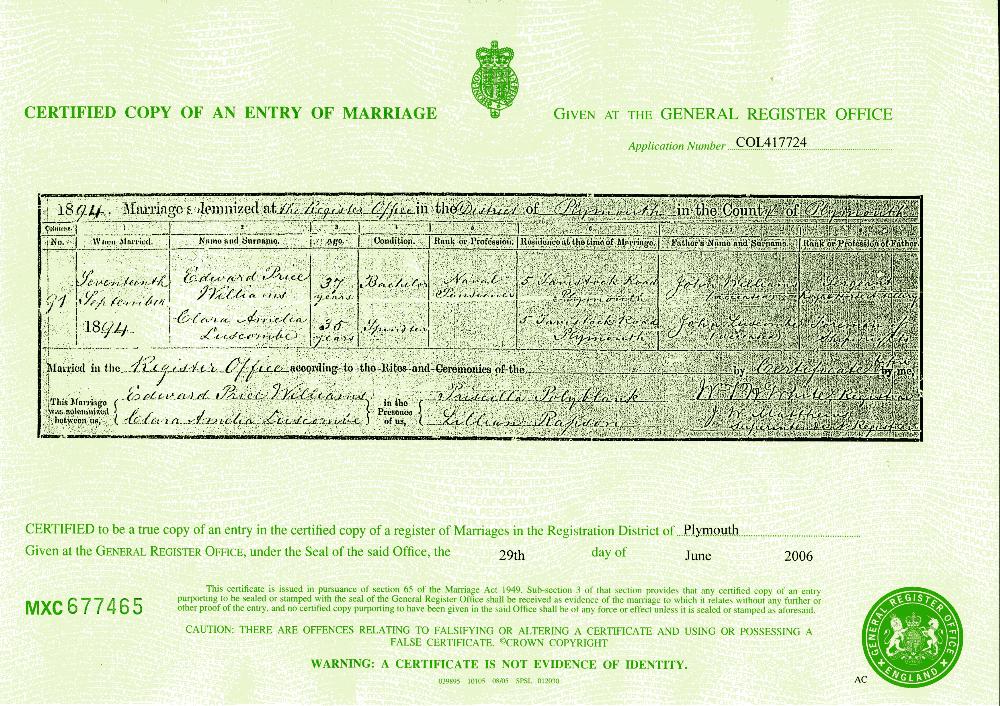 CERTIFIED COPY OF AN ENTRY OF MARRIAGE
GIVEN AT THE GENERAL REGISTER OFFICE
Application Number COL417724
1894. Marriage solemnized at the Register Office in the District of Plymouth in the County of Plymouth
Columns: 1 2 3 4 5 6 7 8
No. When Married. Name and Surname. Age. Condition. Rank or Profession. Residence at the time of Marriage. Father's Name and Surname. Rank or Profession of Father.
91 Seventeenth September 1894
Edward Price Williams 37 years Bachelor Naval Pensioner 5 Tavistock Road Plymouth John Williams
Clara Amelia Luscombe 35 years Spinster 5 Tavistock Road Plymouth John Luscombe
Married in the Register Office according to the Rites and Ceremonies of the by Certificate by me,
This Marriage was solemnized between us, Edward Price Williams Clara Amelia Luscombe
in the Presence of us, Priscilla Polyblank Lillian Rapson
Registrar
Superintendent Registrar
CERTIFIED to be a true copy of an entry in the certified copy of a register of Marriages in the Registration District of Plymouth
Given at the GENERAL REGISTER OFFICE, under the Seal of the said Office, the 29th day of June 2006
MXC 677465
This certificate is issued in pursuance of section 65 of the Marriage Act 1949. Sub-section 3 of that section provides that any certified copy of an entry
purporting to be sealed or stamped with the seal of the General Register Office shall be received as evidence of the marriage to which it relates without any further or
other proof of the entry, and no certified copy purporting to have been given in the said Office shall be of any force or effect unless it is sealed or stamped as aforesaid.
CAUTION: THERE ARE OFFENCES RELATING TO FALSIFYING OR ALTERING A CERTIFICATE AND USING OR POSSESSING A
FALSE CERTIFICATE. ©CROWN COPYRIGHT
WARNING: A CERTIFICATE IS NOT EVIDENCE OF IDENTITY.
029895 10105 08/05 SPSL 012030
AC
GENERAL REGISTER OFFICE ENGLAND